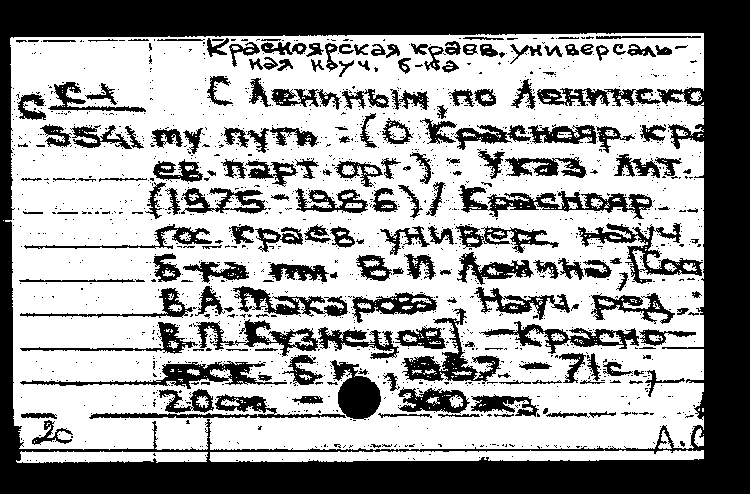 Красноярская краев. универсаль-
ная науч. б-ка
С К-1
5541
С Лениным, по Ленинско
му пути : (О Краснояр. кра
ев. парт. орг.) : Указ. лит.
(1975-1986) / Краснояр.
гос. краев. универс. науч.
б-ка им. В.И. Ленина; [Сост
В.А. Макарова ; Науч. ред.:
В.П. Кузнецов]. — Красно-
ярск. Б. и., 1987. — 71 с.;
20 см. — 300 экз.
20
А.С